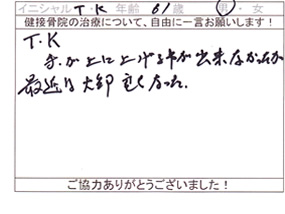 イニシャル T・K 年齢 61歳 男・女
健接骨院の治療について、自由に一言お願いします！
T.K
手が上に上げる事が出来なかったが
最近は大部良くなった.
ご協力ありがとうございました！